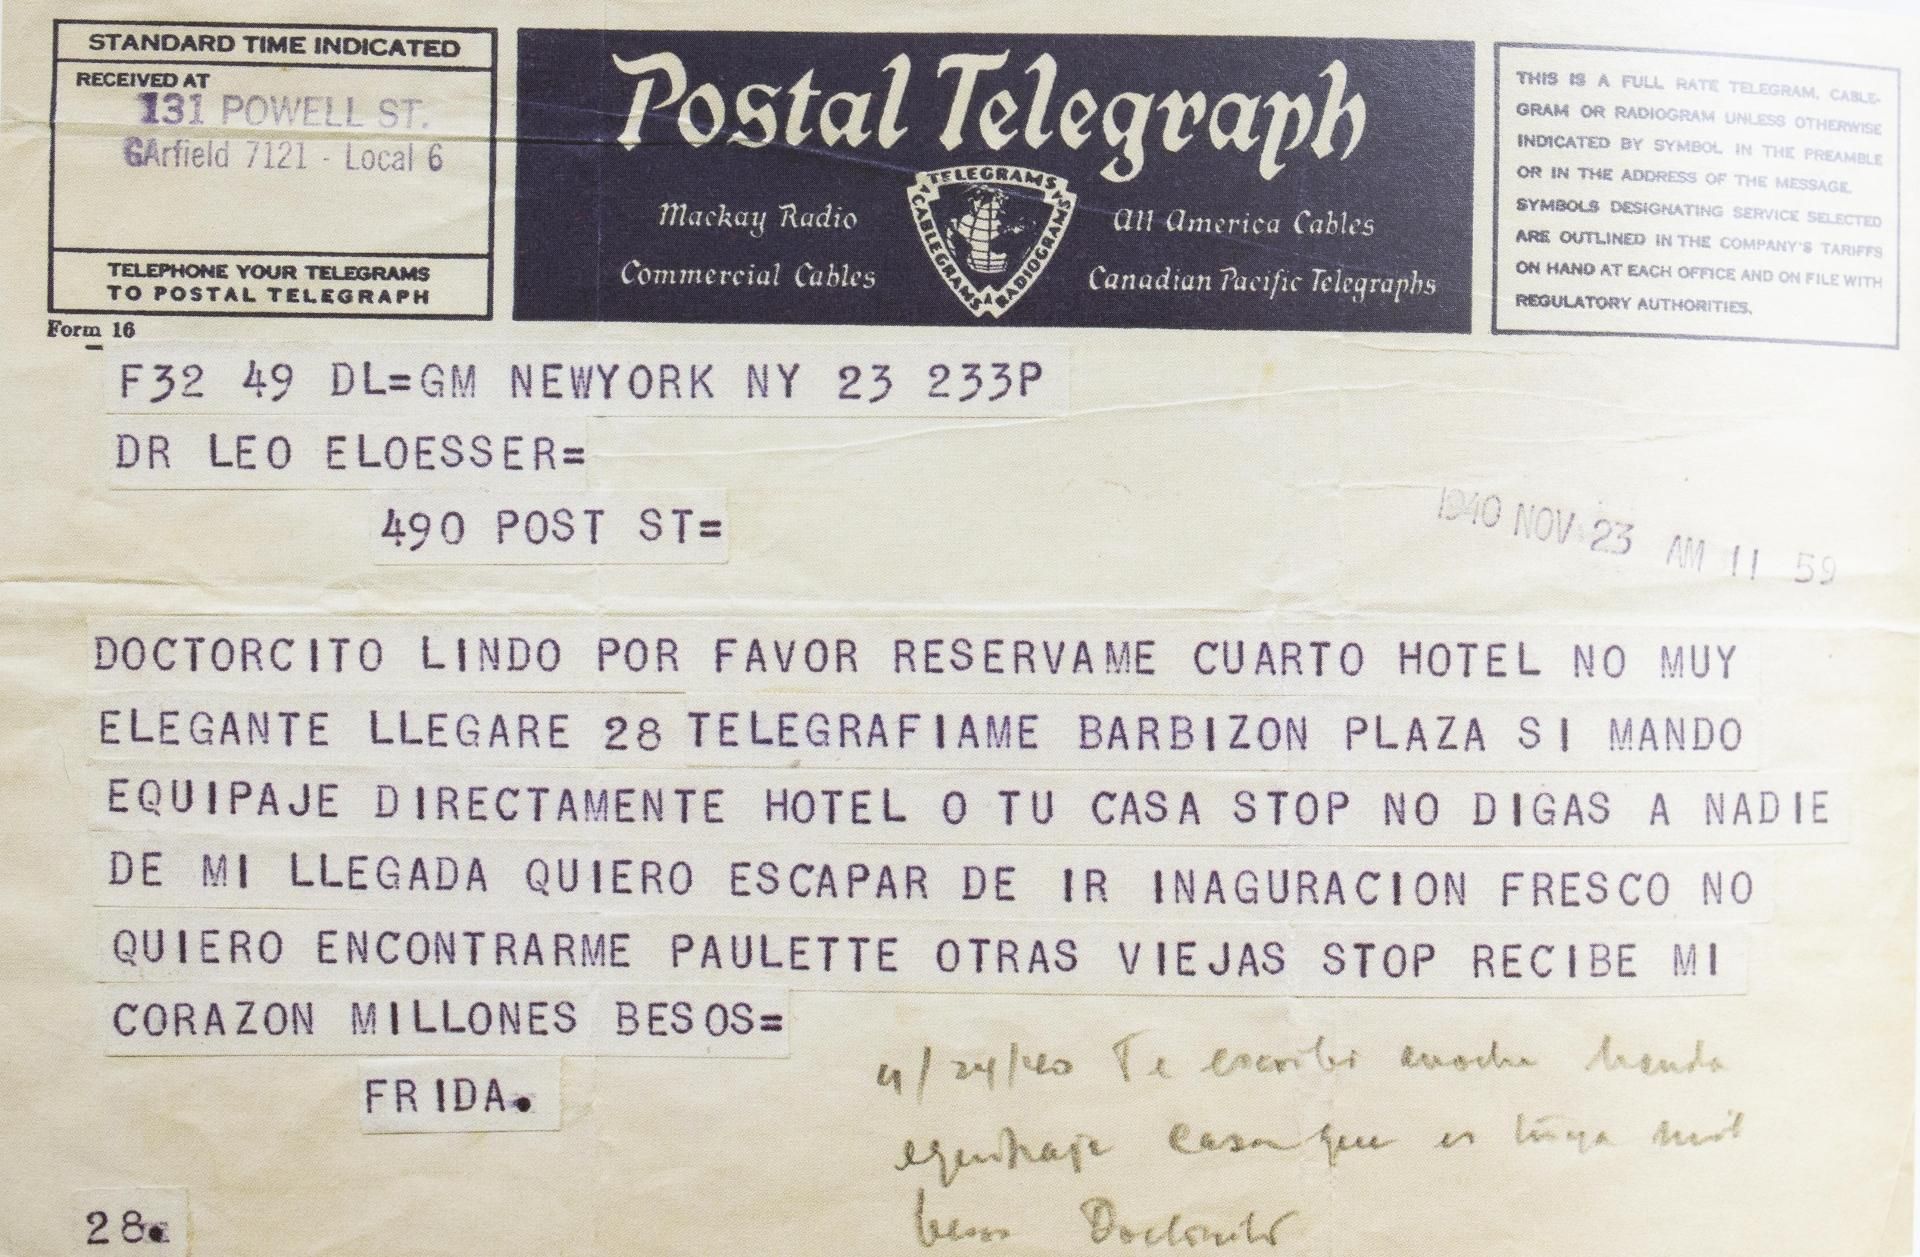 STANDARD TIME INDICATED
RECEIVED AT
131 POWELL ST.
GArfield 7121 - Local 6
TELEPHONE YOUR TELEGRAMS
TO POSTAL TELEGRAPH
Form 16
Postal Telegraph
Mackay Radio
Commercial Cables
TELEGRAMS CABLEGRAMS & RADIOGRAMS
All America Cables
Canadian Pacific Telegraphs
THIS IS A FULL RATE TELEGRAM, CABLE-
GRAM OR RADIOGRAM UNLESS OTHERWISE
INDICATED BY SYMBOL IN THE PREAMBLE
OR IN THE ADDRESS OF THE MESSAGE.
SYMBOLS DESIGNATING SERVICE SELECTED
ARE OUTLINED IN THE COMPANY'S TARIFFS
ON HAND AT EACH OFFICE AND ON FILE WITH
REGULATORY AUTHORITIES.
F32 49 DL=GM NEWYORK NY 23 233P
DR LEO ELOESSER=
490 POST ST=
1940 NOV 23 AM 11 59
DOCTORCITO LINDO POR FAVOR RESERVAME CUARTO HOTEL NO MUY
ELEGANTE LLEGARE 28 TELEGRAFIAME BARBIZON PLAZA SI MANDO
EQUIPAJE DIRECTAMENTE HOTEL O TU CASA STOP NO DIGAS A NADIE
DE MI LLEGADA QUIERO ESCAPAR DE IR INAGURACION FRESCO NO
QUIERO ENCONTRARME PAULETTE OTRAS VIEJAS STOP RECIBE MI
CORAZON MILLONES BESOS=
FRIDA.
11/24/40 Te escribi anoche manda
equipaje casa que es tuya mil
besos Doctorcito
28.